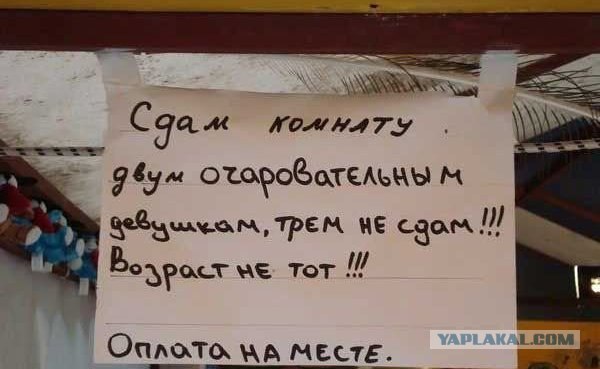 Сдам комнату.
двум очаровательным
девушкам, трем не сдам!!!
Возраст не тот!!!
Оплата на месте.
YAPLAKAL.COM